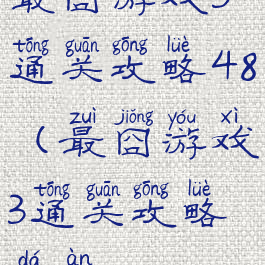 最囧游戏3
tōng guān gōng lüè
通关攻略48
zuì jiǒng yóu xì
(最囧游戏
tōng guān gōng lüè
3通关攻略
dá àn